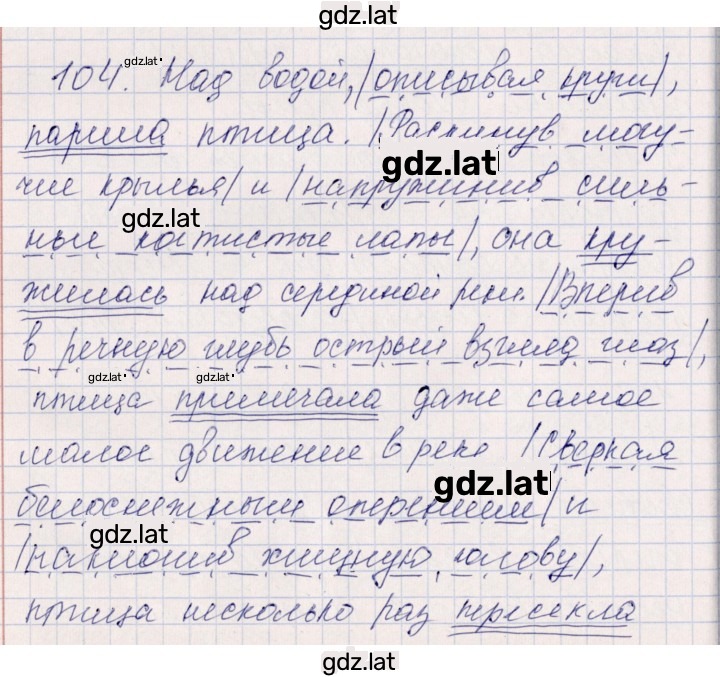 gdz.lat
104. gdz.lat Над водой, |описывая круги|,
парила птица. |Раскинув могу-
gdz.lat
чие крылья| и |напружинив силь-
gdz.lat
ные когтистые лапы|, она кру-
жилась над серединой реки. |Вперив
в речную глубь острый взгляд глаз|,
gdz.lat gdz.lat
птица примечала даже самое
малое движение в реке |Сверкая
gdz.lat
белоснежным оперением| и
gdz.lat
|наклонив хищную голову|,
птица несколько раз пересекла
gdz.lat